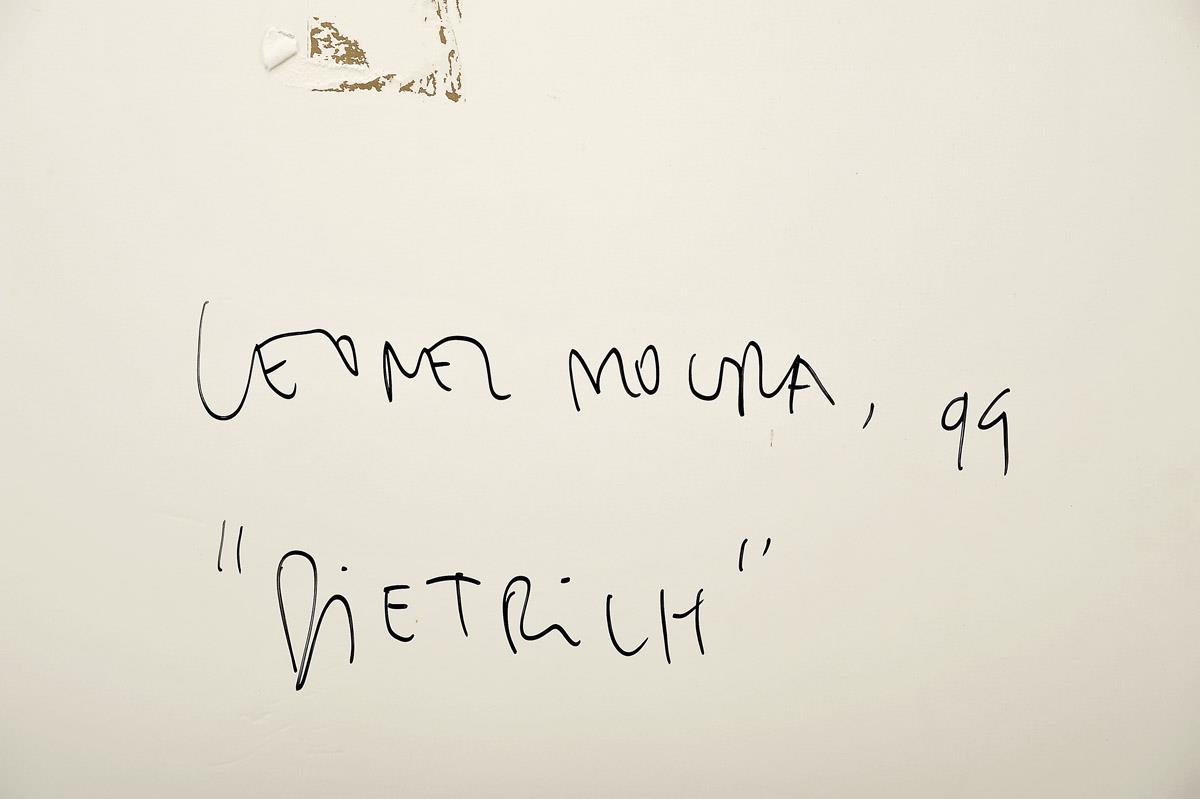 LEONEL MOURA, 99
"DiETRiCH"